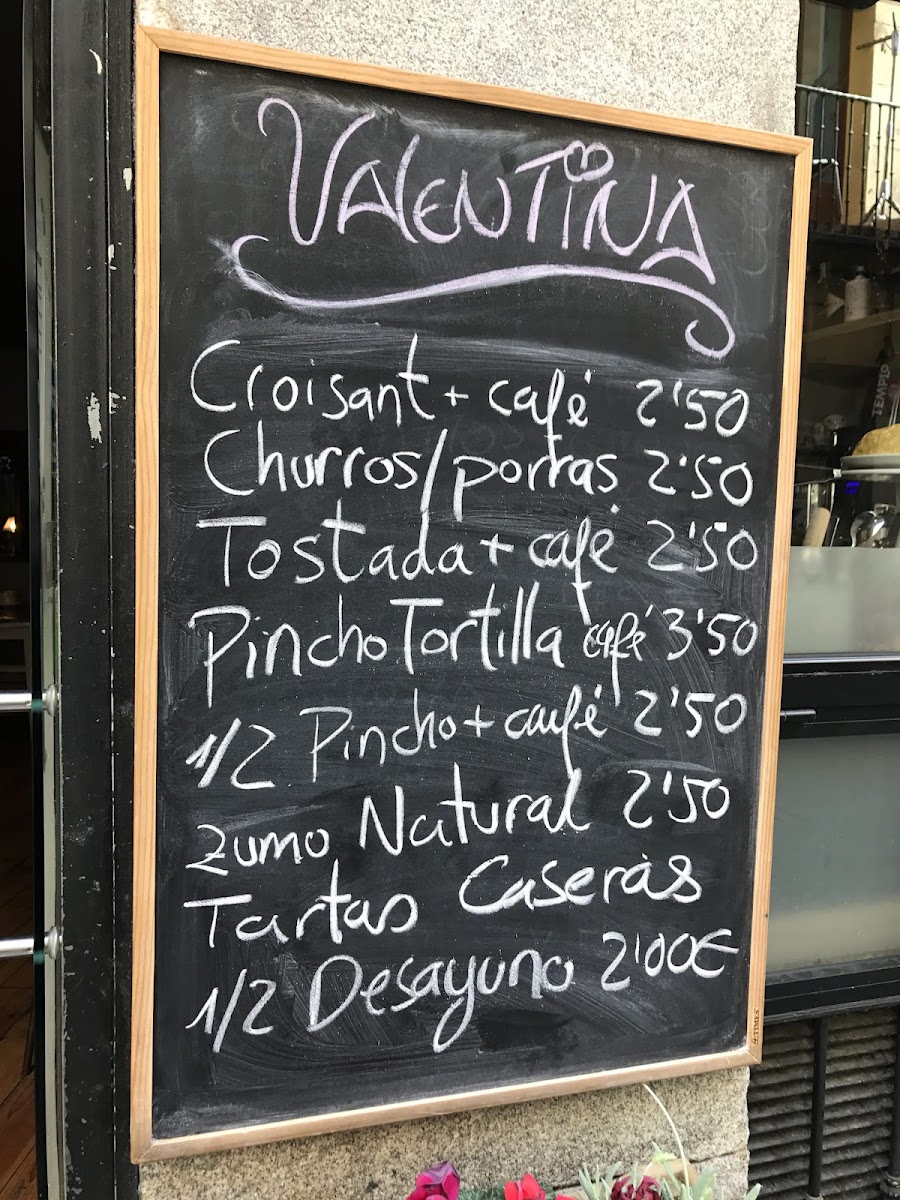 VALENTINA
Croisant + café 2'50
Churros/porras 2'50
Tostada + café 2'50
Pincho Tortilla + café 3'50
1/2 Pincho + café 2'50
zumo Natural 2'50
Tartas Caseras
1/2 Desayuno 2'00€
TEMPIO